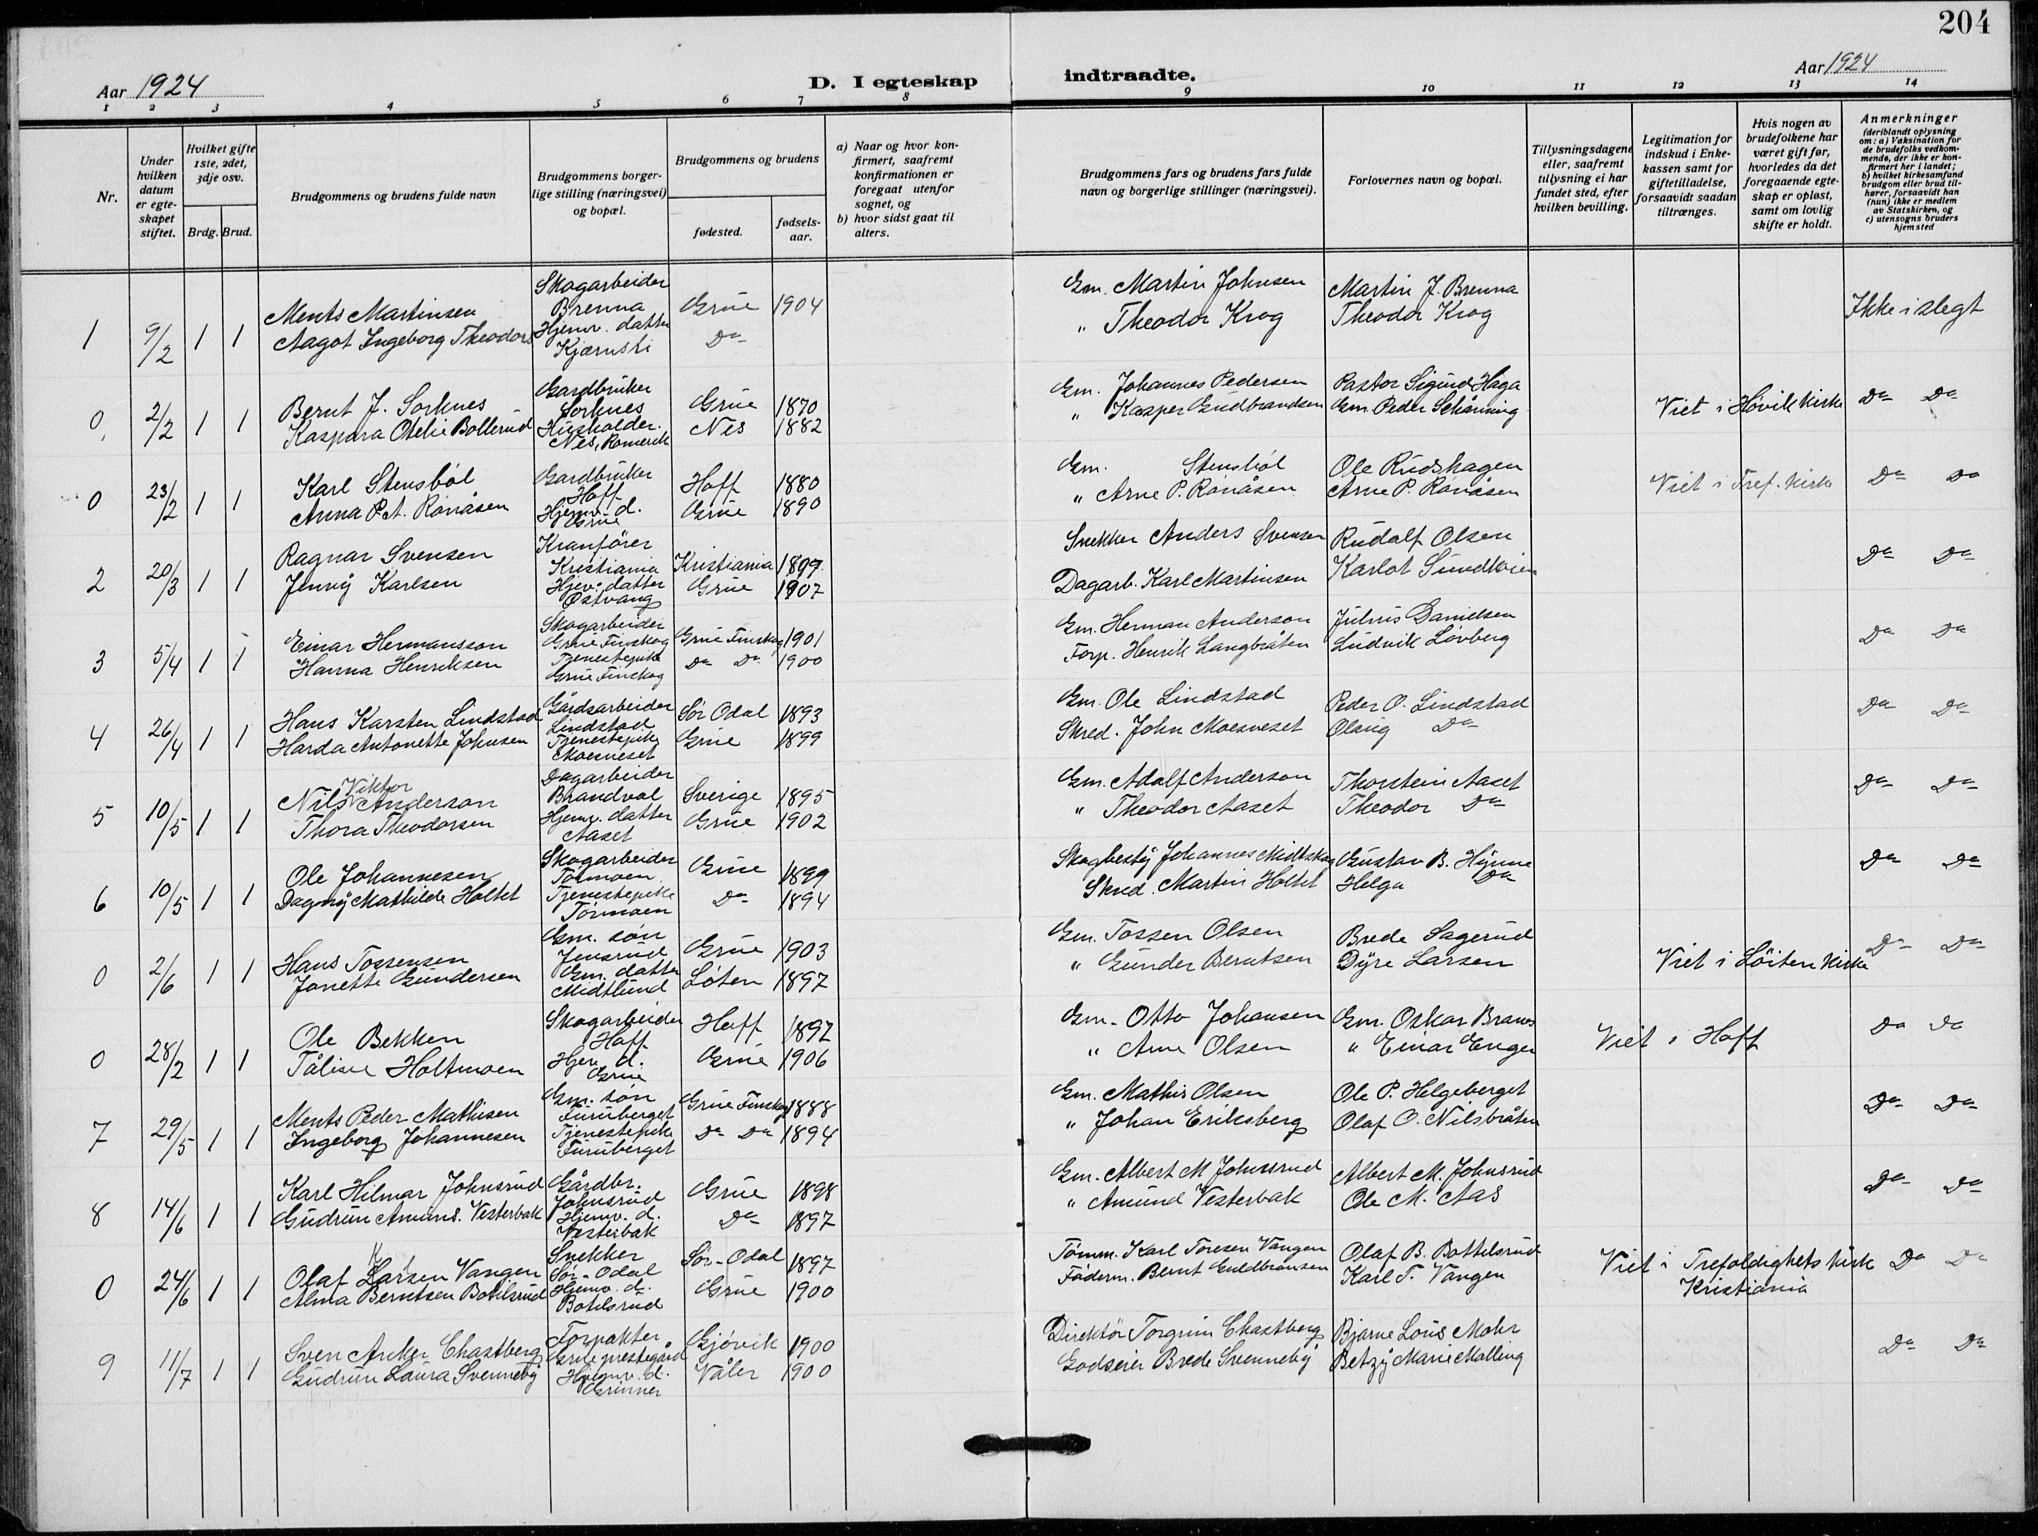 204
Aar 1924
D. I egteskap
indtraadte.
Aar 1924
1 2 3 4 5 6 7 8 9 10 11 12 13 14
Nr.
Under hvilken datum er egte- skapet stiftet.
Hvilket gifte 1ste, 2det, 3dje osv.
Brdg. Brud.
Brudgommens og brudens fulde navn
Brudgommens borger- lige stilling (næringsvei) og bopæl.
Brudgommens og brudens
fødested.
fødsels- aar.
a) Naar og hvor kon- firmert, saafremt konfirmationen er foregaat utenfor sognet, og
b) hvor sidst gaat til alters.
Brudgommens fars og brudens fars fulde navn og borgerlige stillinger (næringsvei).
Forlovernes navn og bopæl.
Tillysningsdagene eller, saafremt tillysning ei har fundet sted, efter hvilken bevilling.
Legitimation for indskud i Enke- kassen samt for giftetilladelse, forsaavidt saadan tiltrænges.
Hvis nogen av brudefolkene har været gift før, hvorledes da det foregaaende egte- skap er opløst, samt om lovlig skifte er holdt.
Anmerkninger (deriblandt oplysning om: a) Vaksination for de brudefolks vedkom- mende, der ikke er kon- firmert her i landet; b) hvilket kirkesamfund brudgom eller brud til- hører, forsaavidt han (hun) ikke er medlem av Statskirken, og c) utensogns bruders hjemsted
1 9/2 1 1 Ments Martinsen Skogarbeider Brenna Grue 1904 Gm. Martin Johnsen Martin J. Brenna Ikke i slegt
Aagot Ingeborg Theodors Hjemv. datter Kjærnsli Do " Theodor Krog Theodor Krog
0 2/2 1 1 Bernt J. Sorknes Gardbruker Sorknes Grue 1870 Gm. Johannes Pedersen Pastor Sigurd Haga Viet i Høvik Kirke Do Do
Kaspara Otelie Bollerud Husholder. Nes, Romerik Nes 1882 " Kasper Gudbrandsen Gm. Peder Schånning
0 23/2 1 1 Karl Stensbøl Gardbruker Hoff Hoff 1880 Gm. Stensbøl Ole Rudshagen Viet i Tref. Kirke Do Do
Anna P.A. Rønåsen Hjemv. d. Grue Grue 1890 " Arne P. Rønåsen Arne P. Rønåsen
2 20/3 1 1 Ragnar Svensen Kranfører Kristiania Kristiania 1899 Snekker Anders Svensen Rudolf Olsen Do Do
Jenny Karlsen Hjv. datter Østvang Grue 1907 Dagarb. Karl Martinsen Karlot Sundmoen
3 5/4 1 1 Einar Hermansson Skogarbeider Grue Finskog Grue Finskog 1901 Gm. Herman Anderson Julius Danielsen Do Do
Hanna Henriksen Tjenestepike Grue Finskog Do Do 1900 Forp. Henrik Langbråten Ludvik Løvberg
4 26/4 1 1 Hans Karsten Lindstad Gårdsarbeider Lindstad Sør Odal 1893 Gm. Ole Lindstad Peder O. Lindstad Do Do
Harda Antonette Johnsen Tjenestepike Moesneset Grue 1899 Skred. John Moesneset Olaug Do
5 10/5 1 1 Nils Viktor Anderson Dagarbeider Brandval Sverige 1895 Gm. Adolf Anderson Thorstein Aaset Do Do
Thora Theodorsen Hjemv. datter Aaset Grue 1902 " Theodor Aaset Theodor Do
6 10/5 1 1 Ole Johannesen Skogarbeider Tormoen Grue 1899 Skogbesty Johannes Midtskog Gustav B. Hynne Do Do
Dagny Mathilde Holtet Tjenestepike Tormoen Do 1894 Skred. Martin Holtet Helga Do
0 2/6 1 1 Hans Tossensen Gm. søn Jensrud Grue 1903 Gm. Tossen Olsen Brede Sagerud Viet i Löiten Kirke Do Do
Janette Gundersen Gm. datter Midtlund Løten 1897 " Gunder Berntsen Dyre Larsen
0 28/2 1 1 Ole Bekken Skogarbeider Hoff Hoff 1897 Gm. Otto Johansen Gm. Oskar Branes Viet i Hoff Do Do
Tåline Holtmoen Hjv. d. Grue Grue 1906 " Arne Olsen " Einar Enger
7 29/5 1 1 Ments Peder Mathisen Gm. søn Furuberget Grue Finskog 1888 Gm. Mathis Olsen Ole P. Helgeberget Do Do
Ingeborg Johannesen Tjenestepike Furuberget Do Do 1894 " Johan Eriksberg Olaf O. Nilsbråten
8 14/6 1 1 Karl Hilmar Johnsrud Gårdbr. Johnsrud Grue 1898 Gm. Albert M Johnsrud Albert M. Johnsrud Do Do
Gudrun Amunds. Vesterbak Hjemv. d. Vesterbak Do 1897 " Amund Vesterbak Ole M. Aas
0 24/6 1 1 Olaf Larsen Vangen Snekker Sør-Odal Sør-Odal 1897 Tømm. Karl Toresen Vangen Olaf B. Bottilsrud Viet i Trefoldighets Kirk Kristiania Do Do
Alma Berntsen Botilsrud Hjemv. d. Botilsrud Grue 1900 Föderm. Bernt Guldbransen Karl T. Vangen
9 11/7 1 1 Sven Anker Chastberg Forpakter Grue prestegård Gjøvik 1900 Direktör Torgrim Chastberg Bjarne Louis Mohr Do Do
Gudrun Laura Svenneby Hjemv. d. Grinner Våler 1900 Godseier Brede Svenneby Betzy Marie Malling